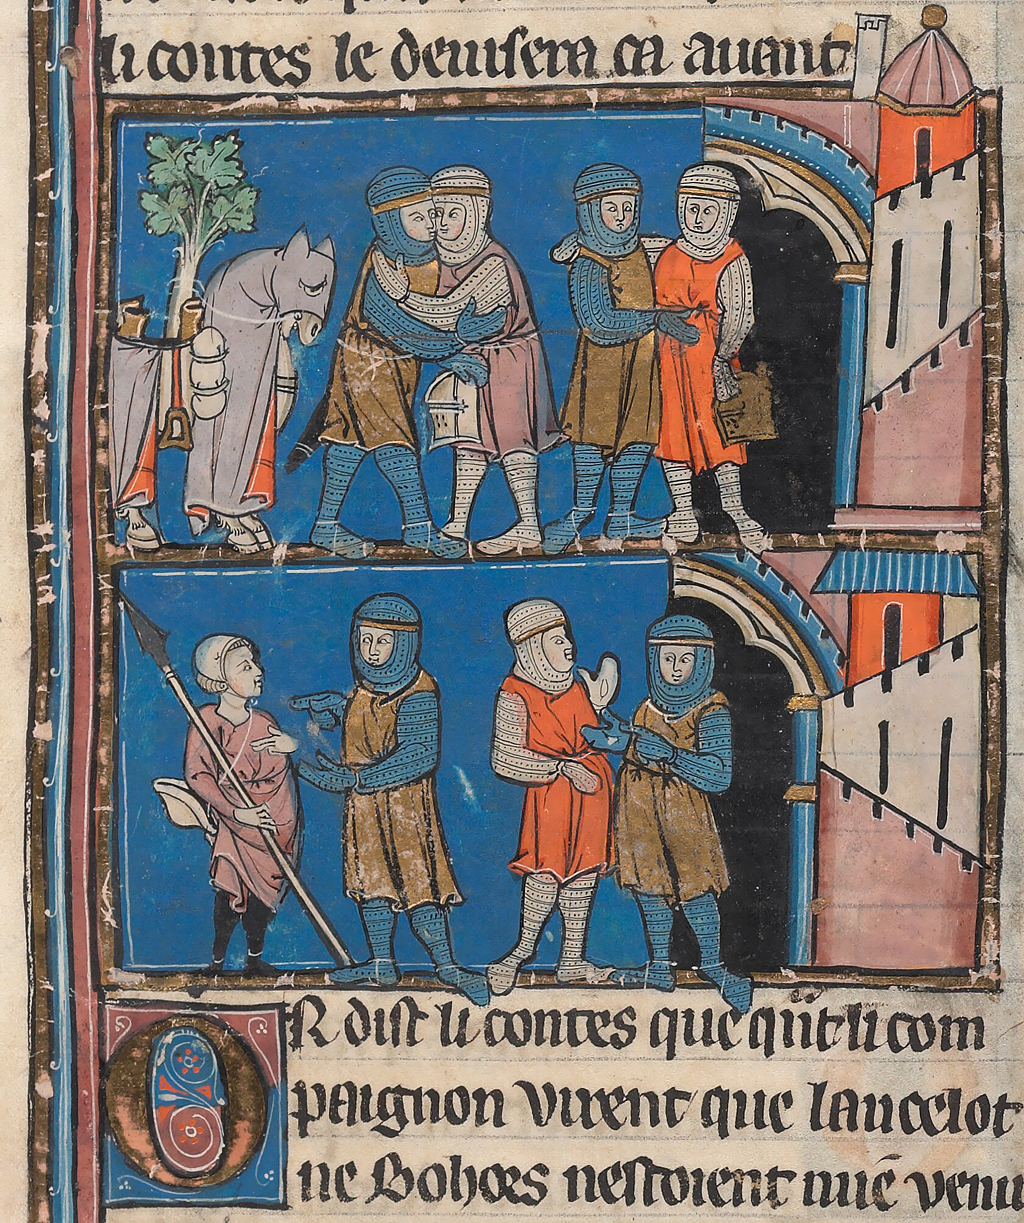 li contes le deuisera ca auant
OR dist li contes que qnt li com
paignon virent que lancelot
ne Bohors nestoient mie venu